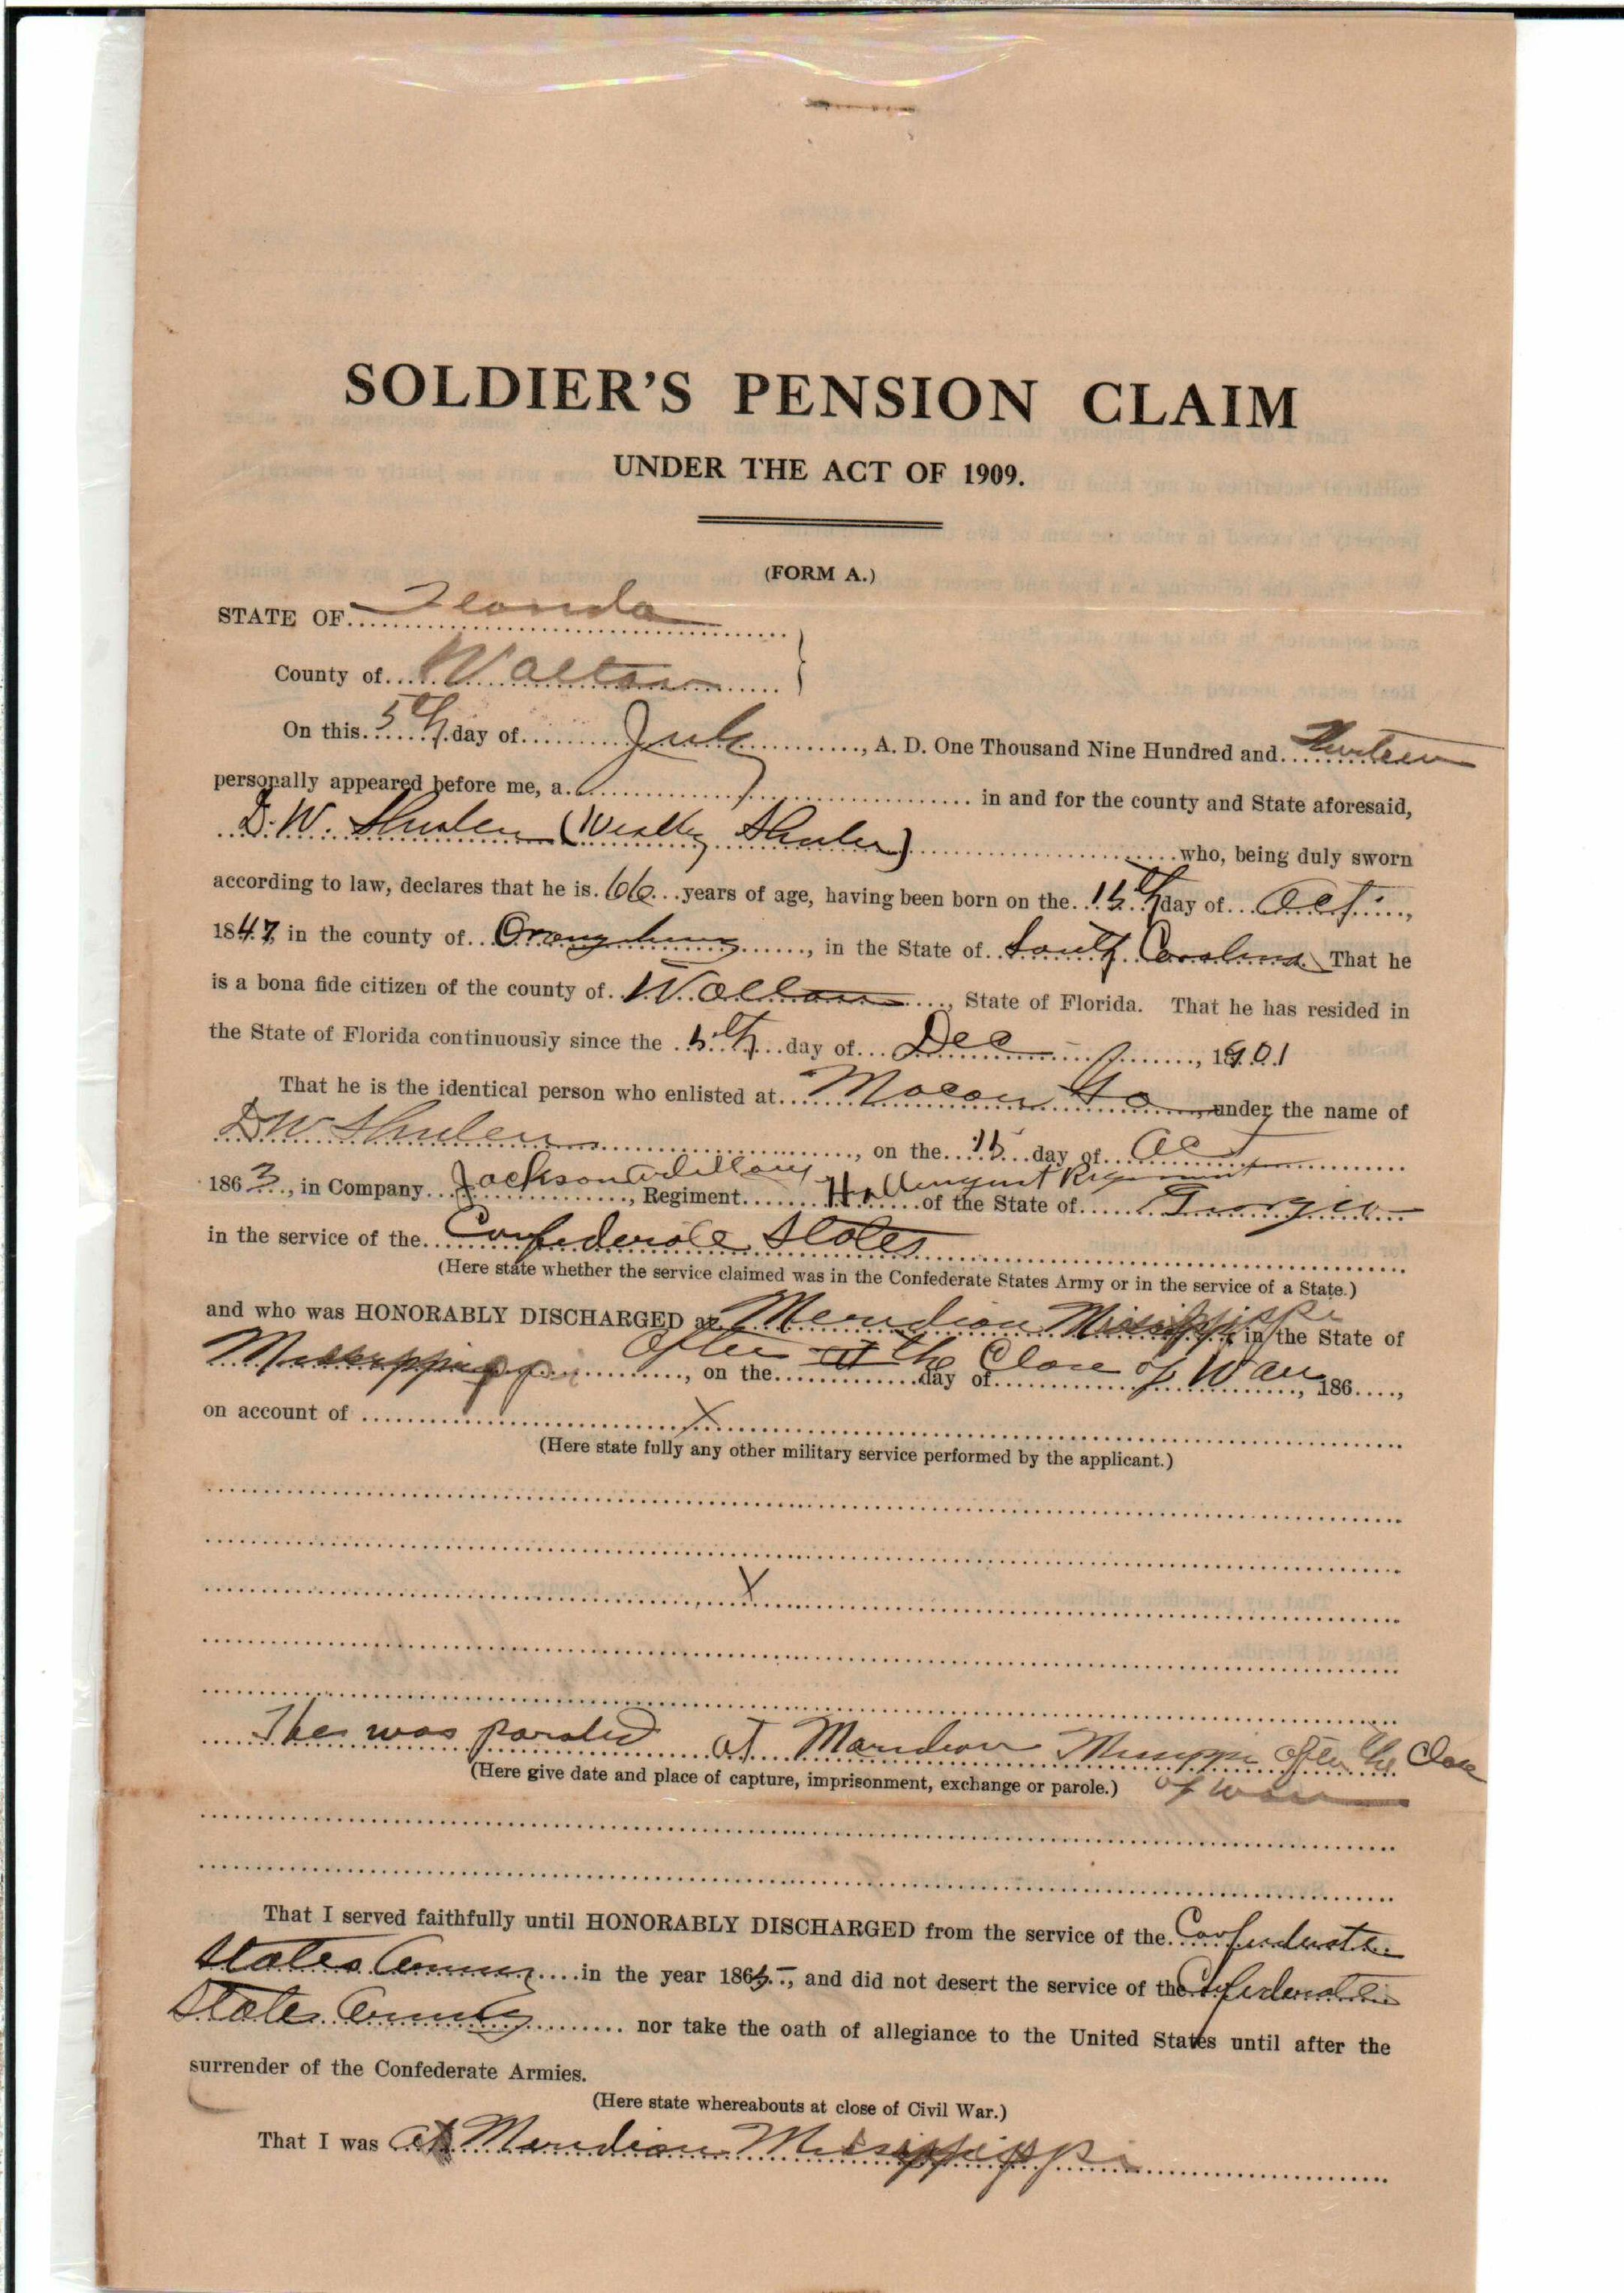 SOLDIER'S PENSION CLAIM
UNDER THE ACT OF 1909.
(FORM A.)
STATE OF Florida
County of Walton
On this 5th day of July, A. D. One Thousand Nine Hundred and
personally appeared before me, a in and for the county and State aforesaid,
D. W. Shuler ( Shuler) who, being duly sworn
according to law, declares that he is 66 years of age, having been born on the 15th day of Oct,
1847, in the county of Orangeburg, in the State of South Carolina That he
is a bona fide citizen of the county of Walton, State of Florida. That he has resided in
the State of Florida continuously since the 5th day of Dec, 1901
That he is the identical person who enlisted at Macon Ga under the name of
D W Shuler, on the 15 day of Oct
1863, in Company Jackson Artillery, Regiment of the State of Georgia
in the service of the Confederate States
(Here state whether the service claimed was in the Confederate States Army or in the service of a State.)
and who was HONORABLY DISCHARGED at Meridian Mississippi in the State of
Mississippi, on the day of After the Close of War, 186
on account of X
(Here state fully any other military service performed by the applicant.)
X
was paroled at Meridian after the Close
(Here give date and place of capture, imprisonment, exchange or parole.) of war
That I served faithfully until HONORABLY DISCHARGED from the service of the Confederate
States Army in the year 1865, and did not desert the service of the Confederate
States Army nor take the oath of allegiance to the United States until after the
surrender of the Confederate Armies.
(Here state whereabouts at close of Civil War.)
That I was at Meridian Mississippi